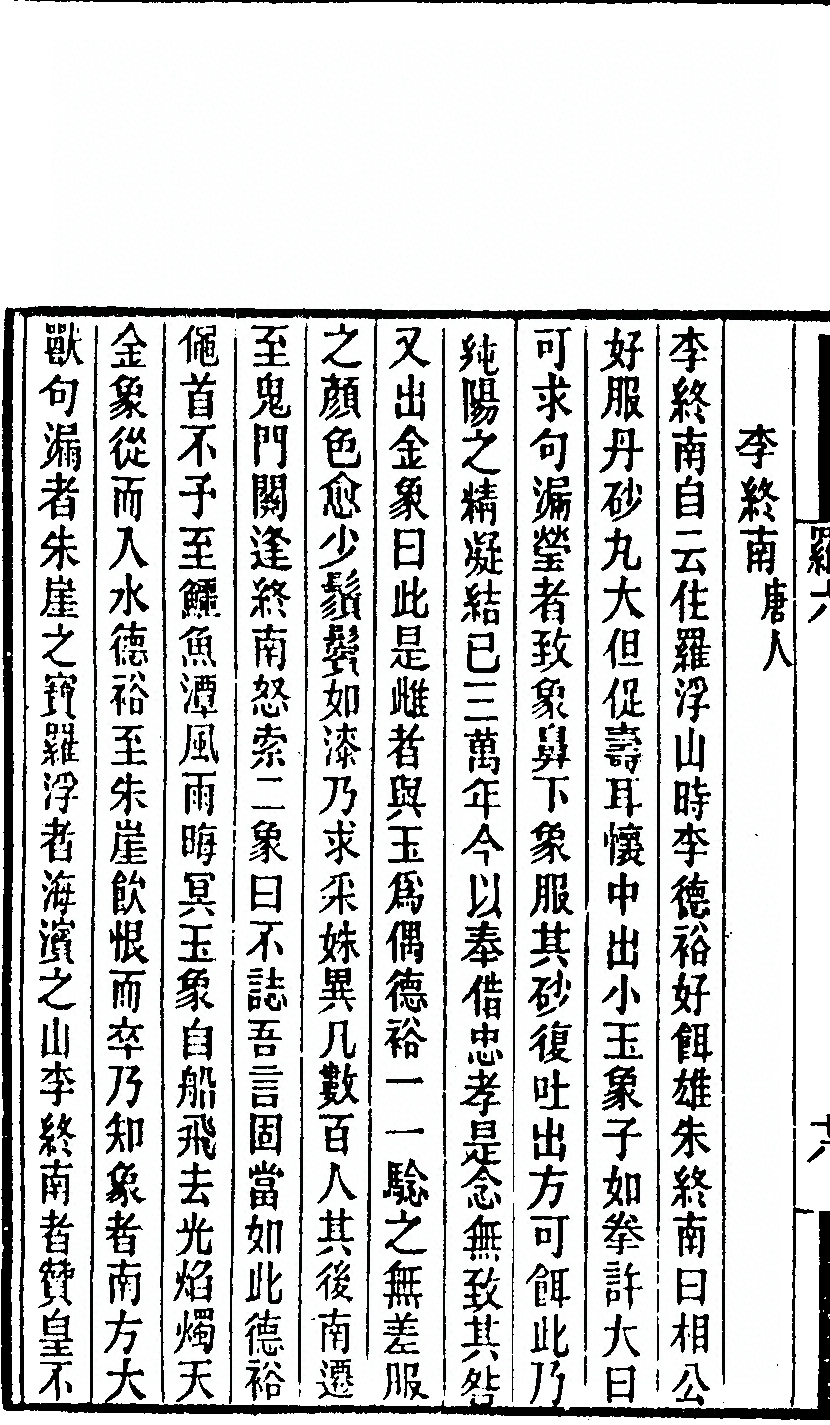 李終南唐人
李終南自云住羅浮山時李德裕好餌雄朱終南曰相公
好服丹砂丸大但促壽耳懷中出小玉象子如拳許大曰
可求句漏瑩者致象鼻下象服其砂復吐出方可餌此乃
純陽之精凝結已三萬年今以奉借忠孝是念無致其咎
又出金象曰此是雌者與玉爲偶德裕一一驗之無差服
之顏色愈少鬚鬢如漆乃求采姝異凡數百人其後南遷
至鬼門關逢終南怒索二象曰不誌吾言固當如此德裕
僶首不予至鱷魚潭風雨晦冥玉象自船飛去光焰燭天
金象從而入水德裕至朱崖飮恨而卒乃知象者南方大
獸句漏者朱崖之寶羅浮者海濱之山李終南者贊皇不